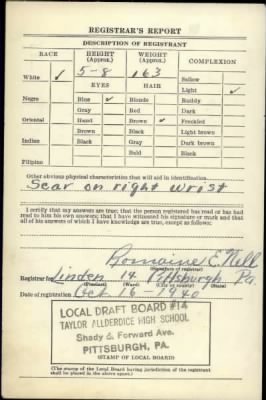 REGISTRAR'S REPORT
DESCRIPTION OF REGISTRANT
RACE HEIGHT (Approx.) WEIGHT (Approx.) COMPLEXION
White ✓ 5-8 163 Sallow
EYES HAIR Light ✓
Negro Blue ✓ Blonde Ruddy
Gray Red Dark
Oriental Hazel Brown ✓ Freckled
Brown Black Light brown
Indian Black Gray Dark brown
Bald Black
Filipino
Other obvious physical characteristics that will aid in identification
Scar on right wrist
I certify that my answers are true; that the person registered has read or has had
read to him his own answers; that I have witnessed his signature or mark and that
all of his answers of which I have knowledge are true, except as follows:
E.
(Signature of registrar)
Registrar for Linden 14 Pittsburgh Pa
(Precinct) (Ward) (City or county) (State)
Date of registration Oct 16 - 1940
LOCAL DRAFT BOARD #14
TAYLOR ALLDERDICE HIGH SCHOOL
Shady & Forward Ave.
PITTSBURGH, PA.
(STAMP OF LOCAL BOARD)
(The stamp of the Local Board having jurisdiction of the registrant
shall be placed in the above space.)